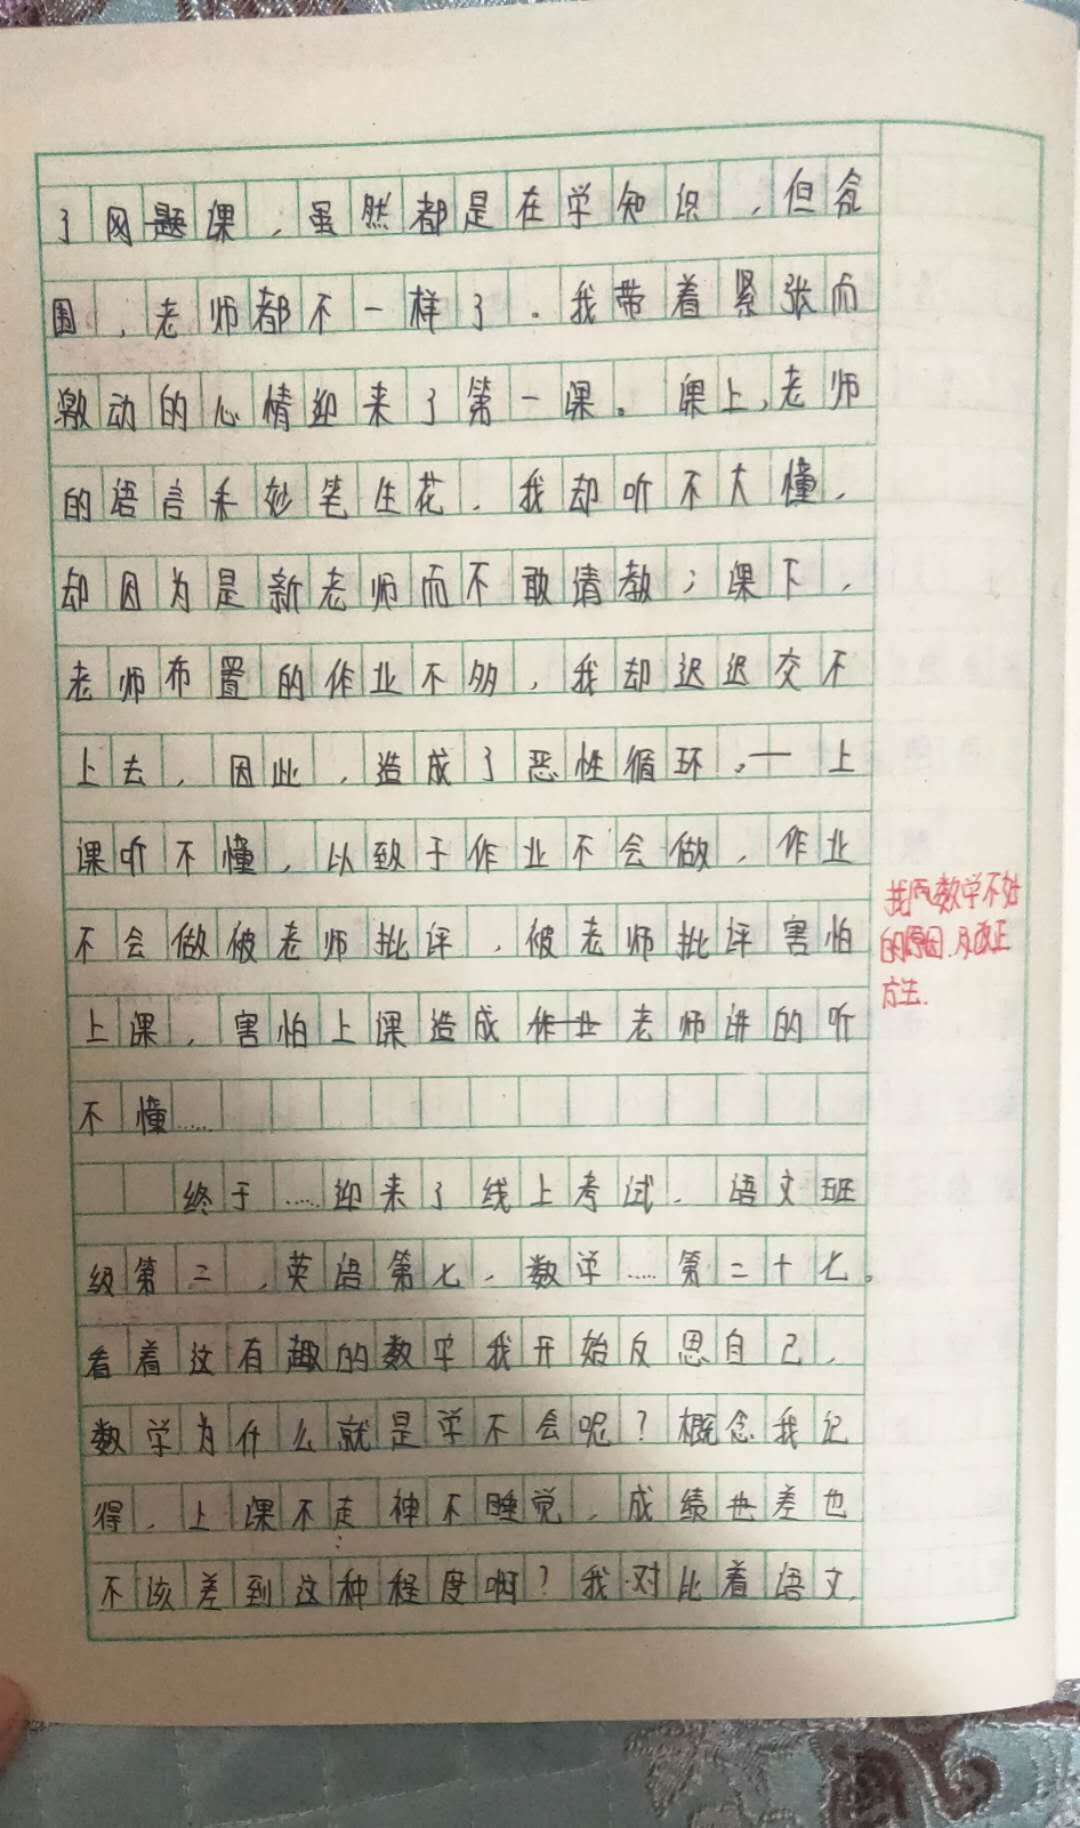 了网题课，虽然都是在学知识，但氛
围，老师都不一样了。我带着紧张而
激动的心情迎来了第一课。课上，老师
的语言禾妙笔生花，我却听不大懂，
却因为是新老师而不敢请教；课下，
老师布置的作业不多，我却迟迟交不
上去，因此，造成了恶性循环。一上
课听不懂，以致于作业不会做，作业
不会做被老师批评，被老师批评害怕
上课，害怕上课造成作业老师讲的听
不懂……
终于……迎来了线上考试，语文班
级第二，英语第七，数学……第二十七。
看着这有趣的数字我开始反思自己，
数学为什么就是学不会呢？概念我记
得，上课不走神不睡觉，成绩也差也
不该差到这种程度啊？我对比着语文，
数学不好
的原因及改正
方法.